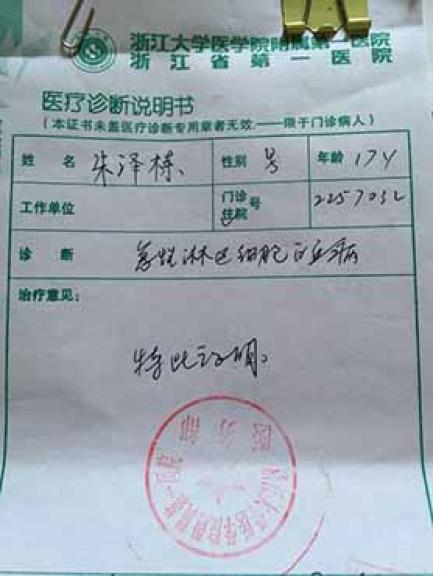 浙江大学医学院附属第一医院
浙江省第一医院
医疗诊断说明书
（本证书未盖医疗诊断专用章者无效——限于门诊病人）
姓名 朱泽栋、 性别 男 年龄 17Y
工作单位 门诊住院号 2257032
诊断 急性淋巴细胞白血病
治疗意见：
特此证明。
医务部